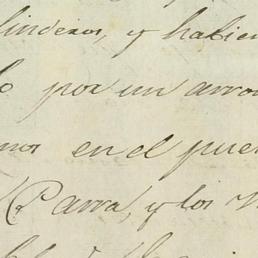 linderos, y habien
por un arro
mos en el pue
Parra, y los